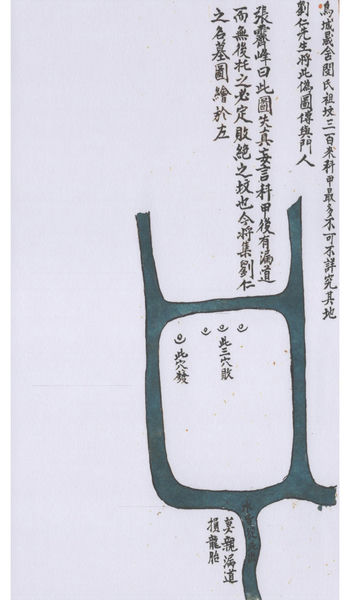 烏城晟舍閔氏祖坟三百來科甲最多不可不詳究其地
劉仁先生將此偽圖傳與門人
張霽峰曰此圖失真妄言科甲後有漏道
而無後托之必定敗絕之坟也今將集劉仁
之名墓圖繪於左
此三穴敗
此穴發
莫親漏道
損龍胎